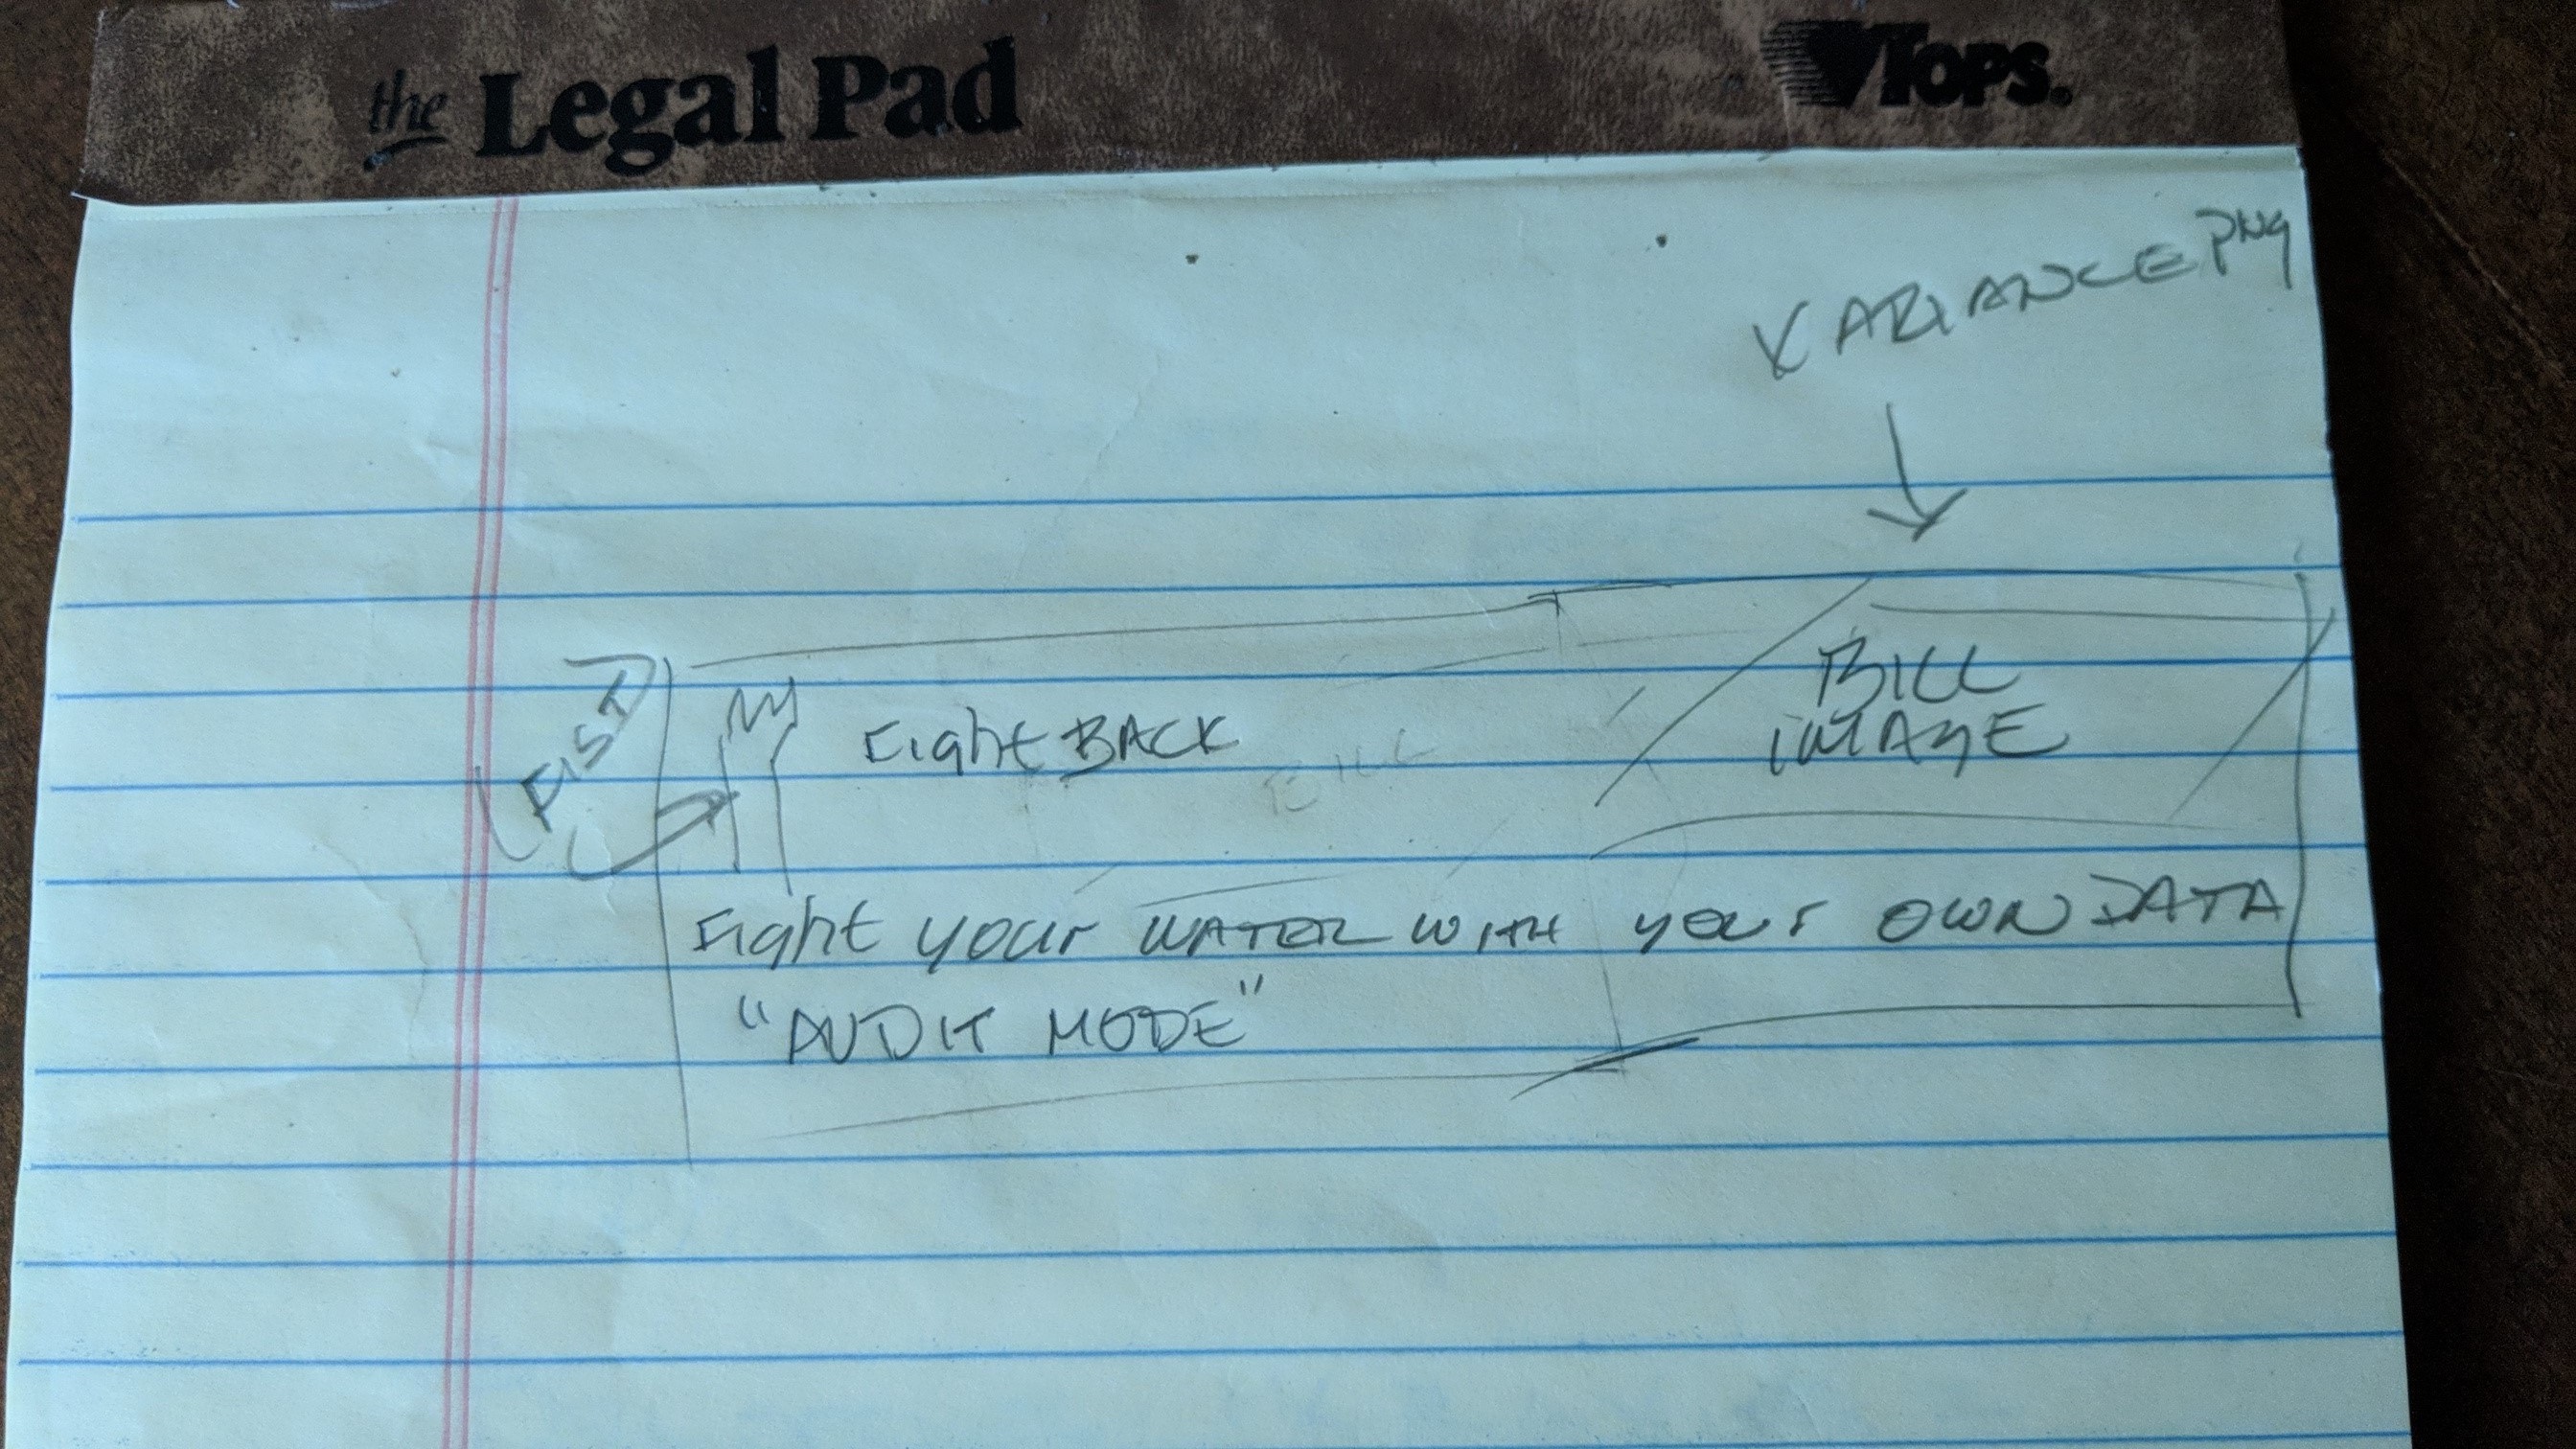 the Legal Pad
TOPS.
VARIANCE PNG
BILL
IMAGE
(FIST)
Fight BACK
BILL
Fight your WATER WITH your OWN DATA
"AUDIT MODE"